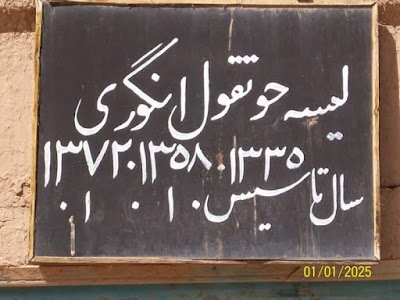 لیسه حوتقول انگوری
۱۳۳۵.۱۳۵۸.۱۳۷۲
سال تاسیس
01/01/2025